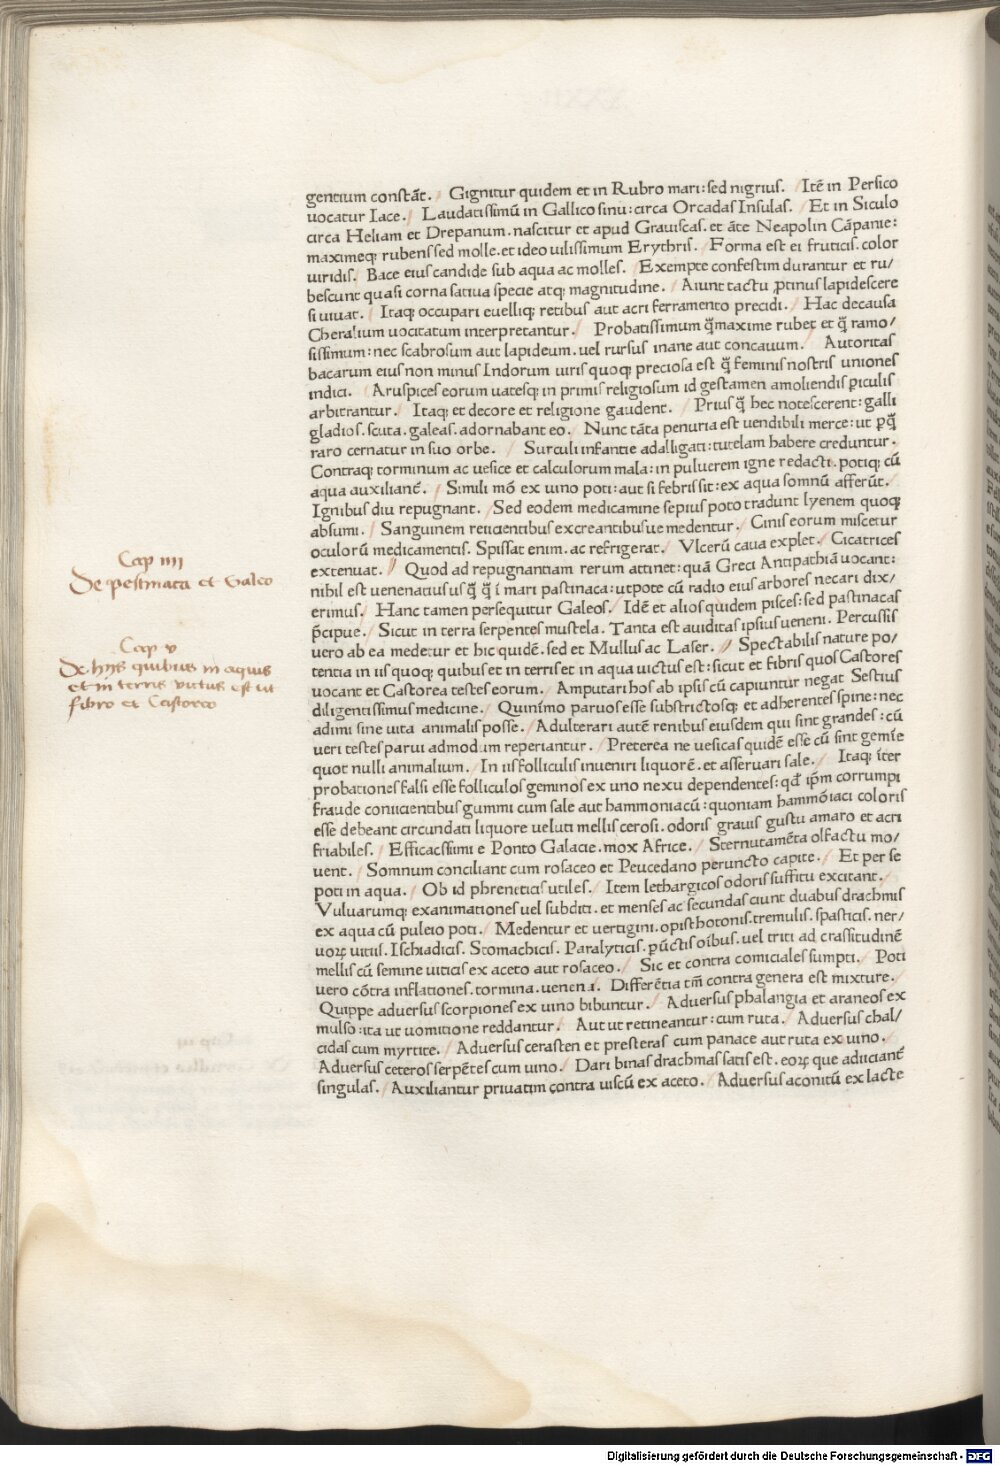 gentium constãt. Gignitur quidem et in Rubro mari: sed nigrius. Itẽ in Persico
uocatur Iace. Laudatissimũ in Gallico sinu: circa Orcadas Insulas. Et in Siculo
circa Heliam et Drepanum. nascitur et apud Grauiscas. et ãte Neapolin Cãpanie:
maximeqꝫ rubens sed molle. et ideo uilissimum Erythris. Forma est ei fruticis. color
uiridis. Bace eius candide sub aqua ac molles. Exempte confestim durantur et ru/
bescunt quasi corna satiua specie atqꝫ magnitudine. Aiunt tactu ꝓtinus lapidescere
si uiuat. Itaqꝫ occupari euelliqꝫ retibus aut acri ferramento precidi. Hac decausa
Cheralium uocitatum interpretantur. Probatissimum q̃maxime rubet et q̃ ramo/
sissimum: nec scabrosum aut lapideum. uel rursus inane aut concauum. Autoritas
bacarum eius non minus Indorum uiris quoqꝫ preciosa est q̃ feminis nostris uniones
indici. Aruspices eorum uatesqꝫ in primis religiosum id gestamen amoliendis ꝑiculis
arbitrantur. Itaqꝫ et decore et religione gaudent. Prius q̃ hec notescerent: galli
gladios. scuta. galeas. adornabant eo. Nunc tãta penuria est uendibili merce: ut ꝑq̃
raro cernatur in suo orbe. Surculi infantie adalligati: tutelam habere creduntur.
Contraqꝫ torminum ac uesice et calculorum mala: in puluerem igne redacti. potiqꝫ cũ
aqua auxilianẽ. Simili mõ ex uino poti: aut si febris sit: ex aqua somnũ afferũt.
Ignibus diu repugnant. Sed eodem medicamine sepius poto tradunt lyenem quoqꝫ
absumi. Sanguinem reiicientibus excreantibusue medentur. Cinis eorum miscetur
oculorũ medicamentis. Spissat enim. ac refrigerat. Vlcerũ caua explet. Cicatrices
extenuat. Quod ad repugnantiam rerum attinet: quã Greci Antipathiã uocant:
nihil est uenenatius usq̃ q̃ ĩ mari pastinaca: utpote cũ radio eius arbores necari dix/
erimus. Hanc tamen persequitur Galeos. Idẽ et alios quidem pisces: sed pastinacas
p̃cipue. Sicut in terra serpentes mustela. Tanta est auiditas ipsius ueneni. Percussis
uero ab ea medetur et hic quidẽ. sed et Mullus ac Laser. Spectabilis nature po/
tentia in iis quoqꝫ quibus et in terris et in aqua uictus est: sicut et fibris quos Castores
uocant et Castorea testes eorum. Amputari hos ab ipsis cũ capiuntur negat Sestius
diligentissimus medicine. Quinĩmo paruos esse substrictosqꝫ et adherentes spine: nec
adimi sine uita animalis posse. Adulterari autẽ renibus eiusdem qui sint grandes: cũ
ueri testes parui admodum reperiantur. Preterea ne uesicas quidẽ esse cũ sint gemĩe
quot nulli animalium. In iis folliculis inueniri liquorẽ. et asseruari sale. Itaqꝫ ĩter
probationes falsi esse folliculos geminos ex uno nexu dependentes: qd̃ ip̃m corrumpi
fraude coniicientibus gummi cum sale aut hammoniacũ: quoniam hammõiaci coloris
esse debeant circundati liquore ueluti mellis cerosi. odoris grauis gustu amaro et acri
friabiles. Efficacissimi e Ponto Galacie. mox Africe. Sternutamẽta olfactu mo/
uent. Somnum conciliant cum rosaceo et Peucedano peruncto capite. Et per se
poti in aqua. Ob id phreneticis utiles. Item lethargicos odoris suffitu excitant.
Vuluarumqꝫ exanimationes uel subditi. et menses ac secundas ciunt duabus drachmis
ex aqua cũ puleio poti. Medentur et vertigini. opisthotonis. tremulis. spasticis. ner/
uoꝝ uitiis. Ischiadicis. Stomachicis. Paralyticis. ꝑũctis oĩbus. uel triti ad crassitudinẽ
mellis cũ semine uiticis ex aceto aut rosaceo. Sic et contra comiciales sumpti. Poti
uero cõtra inflationes. tormina. uenena. Differẽtia tm̃ contra genera est mixture.
Quippe aduersus scorpiones ex uino bibuntur. Aduersus phalangia et araneos ex
mulso: ita ut uomitione reddantur. Aut ut retineantur: cum ruta. Aduersus chal/
cidas cum myrtite. Aduersus cerasten et presteras cum panace aut ruta ex uino.
Aduersus ceteros serpẽtes cum uino. Dari binas drachmas satis est. eoꝝ que adiicianẽ
singulas. Auxiliantur priuatim contra uiscũ ex aceto. Aduersus aconitũ ex lacte
Cap iiii
De pestinaca et Galeo
Cap v
De hijs quibus in aquis
et in terris victus est ut
fibro et Castoreo
Digitalisierung gefördert durch die Deutsche Forschungsgemeinschaft - DFG